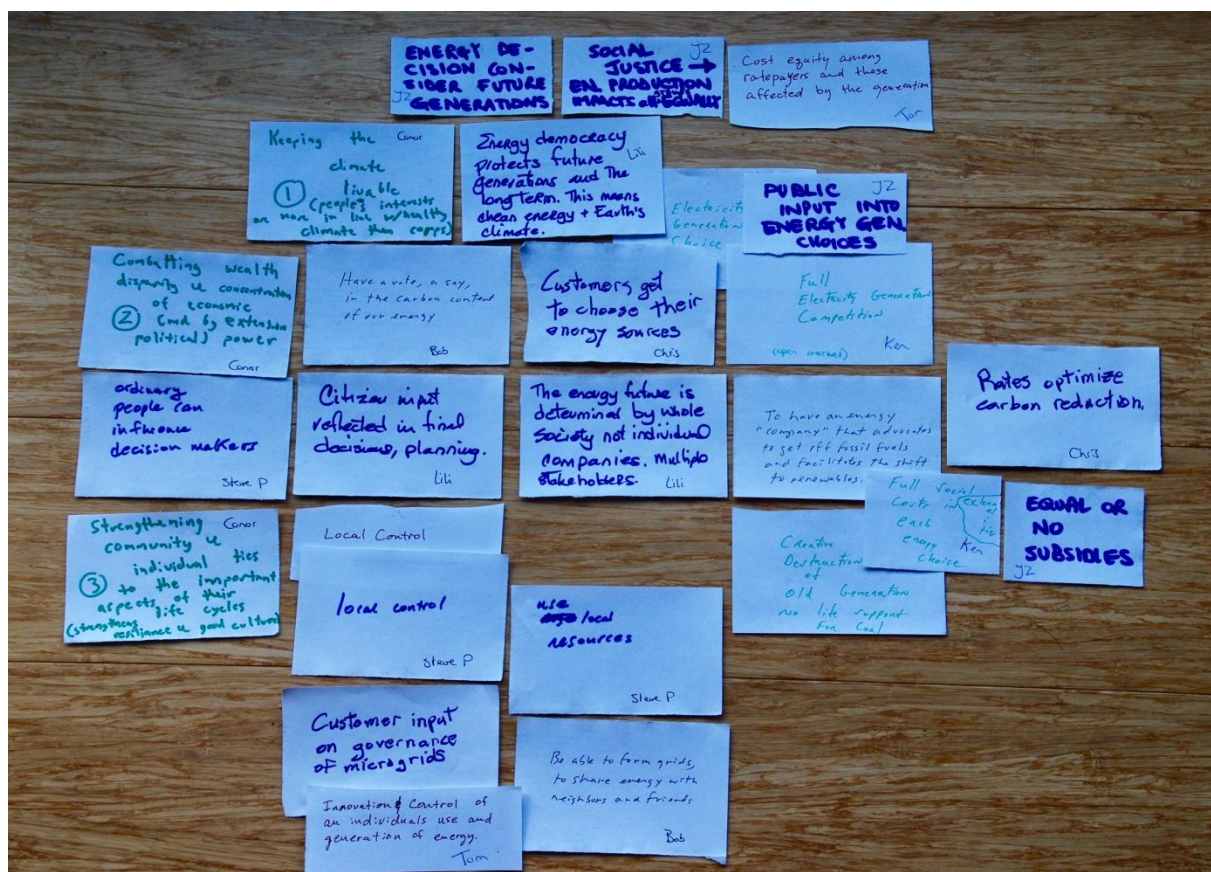 ENERGY DE-
CISION CON-
SIDER FUTURE
GENERATIONS
JZ
SOCIAL
JZ
JUSTICE →
EN. PRODUCTION
IMPACTS EQUALLY
Cost equity among
ratepayers and those
affected by the generation
Tom
Keeping the
Conor
climate
① livable
(people's interests
are more in line w/healthy
climate than corps)
Energy democracy
Lili
protects future
generations and The
long term. This means
clean energy + Earth's
climate.
Electricity
Generation
Choice
PUBLIC
JZ
INPUT INTO
ENERGY GEN.
CHOICES
Combatting wealth
disparity & concentration
of economic
② (and by extension
political) power
Conor
Have a vote, a say,
in the carbon content
of our energy
Bob
Customers get
to choose their
energy sources
Chris
Full
Electricity Generation
Competition
(open market)
Ken
ordinary
people can
influence
decision makers
Steve P
Citizen input
reflected in final
decisions, planning.
Lili
The energy future is
determined by whole
society not individual
companies. Multiple
stakeholders.
Lili
To have an energy
"company" that advocates
to get off fossil fuels
and facilitates the shift
to renewables.
Rates optimize
carbon reduction.
Chris
Strengthening
Conor
community &
individual ties
③ to the important
aspects of their
life cycles
(strengthens
resiliance & good culture)
Local Control
local control
Steve P
use
local
resources
Steve P
Creative
Destruction
of
old Generation
No life support
For Coal
Full Social
Costs in
each
energy
choice
Ken
EQUAL OR
NO
SUBSIDIES
JZ
Customer input
on governance
of microgrids
Innovation & Control of
an individuals use and
generation of energy.
Tom
Be able to form grids,
to share energy with
neighbors and friends
Bob